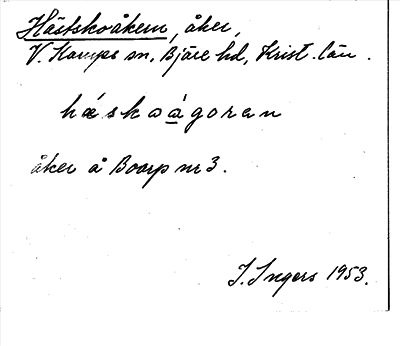 Hästskoåkern, åker,
V. Karups sn, Bjäre hd, Krist. län.
hæskoågoren
åker å Boarp nr 3.
I. Ingers 1953.